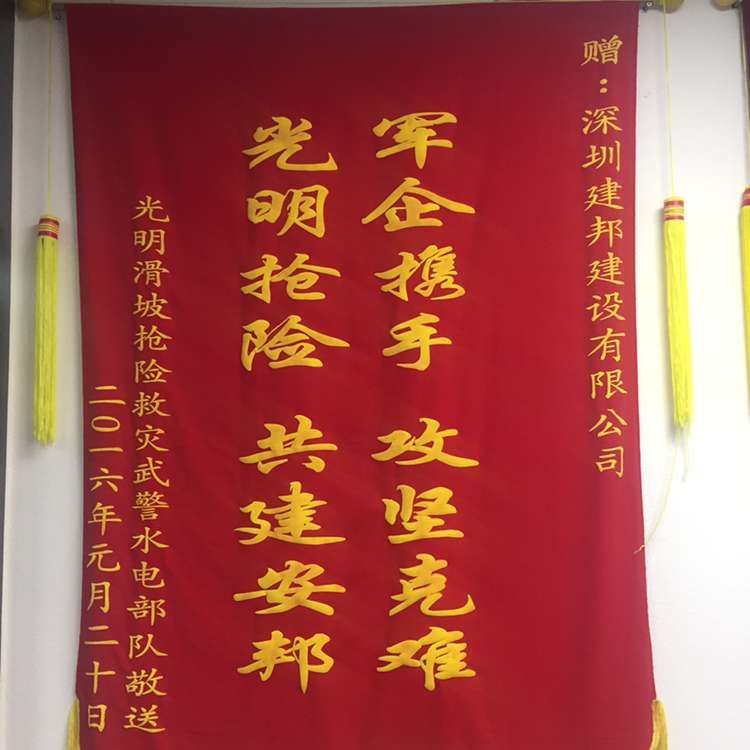 赠：深圳建邦建设有限公司
军企携手 攻坚克难
光明抢险 共建安邦
光明滑坡抢险救灾武警水电部队敬送
二〇一六年元月二十日